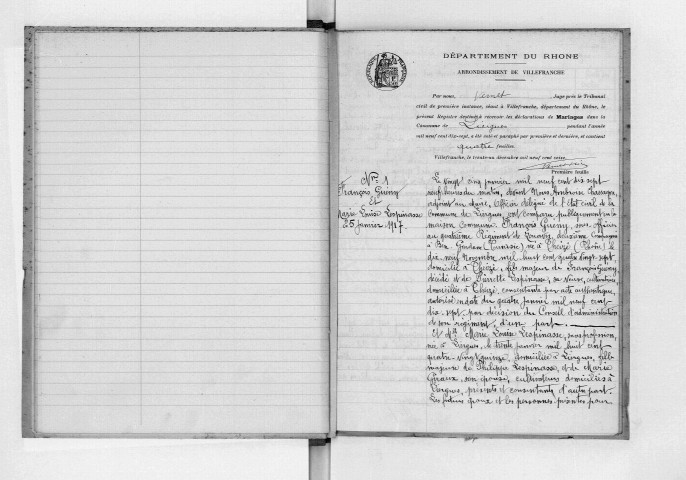 DÉPARTEMENT DU RHONE
ARRONDISSEMENT DE VILLEFRANCHE
Par nous, Juge près le Tribunal
civil de première instance, séant à Villefranche, département du Rhône, le
présent Registre destiné à recevoir les déclarations de Mariages dans la
Commune de Liergues pendant l'année
mil neuf cent dix-sept, a été coté et paraphé par première et dernière, et contient
quatre feuilles.
Villefranche, le trente-un décembre mil neuf cent seize.
Première feuille
N° 1
François Guény
et
Marie Louise Lespinasse
25 janvier 1917.
Le vingt cinq janvier mil neuf cent dix sept
neuf heures du matin, devant Nous Ambroise Chassagne,
adjoint au maire, Officier délégué de l'état civil de la
Commune de Liergues, ont comparu publiquement en la
maison commune: François Guény, sous officier
au quatrième Régiment de Zouaves, deuxième Compagnie
à Ben Gardane (Tunisie) né à Theizé (Rhône) le
dix neuf Novembre mil huit cent quatre vingt sept
domicilié à Theizé, fils majeur de François Guény,
décédé et de Pierrette Lespinasse, sa Veuve, cultivatrice,
domiciliée à Theizé, consentante par acte authentique,
autorisé en date du quatre janvier mil neuf cent
dix-sept, par décision du Conseil d'administration
de son régiment, d'une part.
Et Marie Louise Lespinasse, sans profession,
née à Liergues, le trente janvier mil huit cent
quatre-vingt quinze, domiciliée à Liergues, fille
majeure de Philippe Lespinasse, et de Marie
Giraux, son épouse, cultivateurs domiciliés à
Liergues, présents et consentants d'autre part.
Les futurs époux et les personnes présentes pour